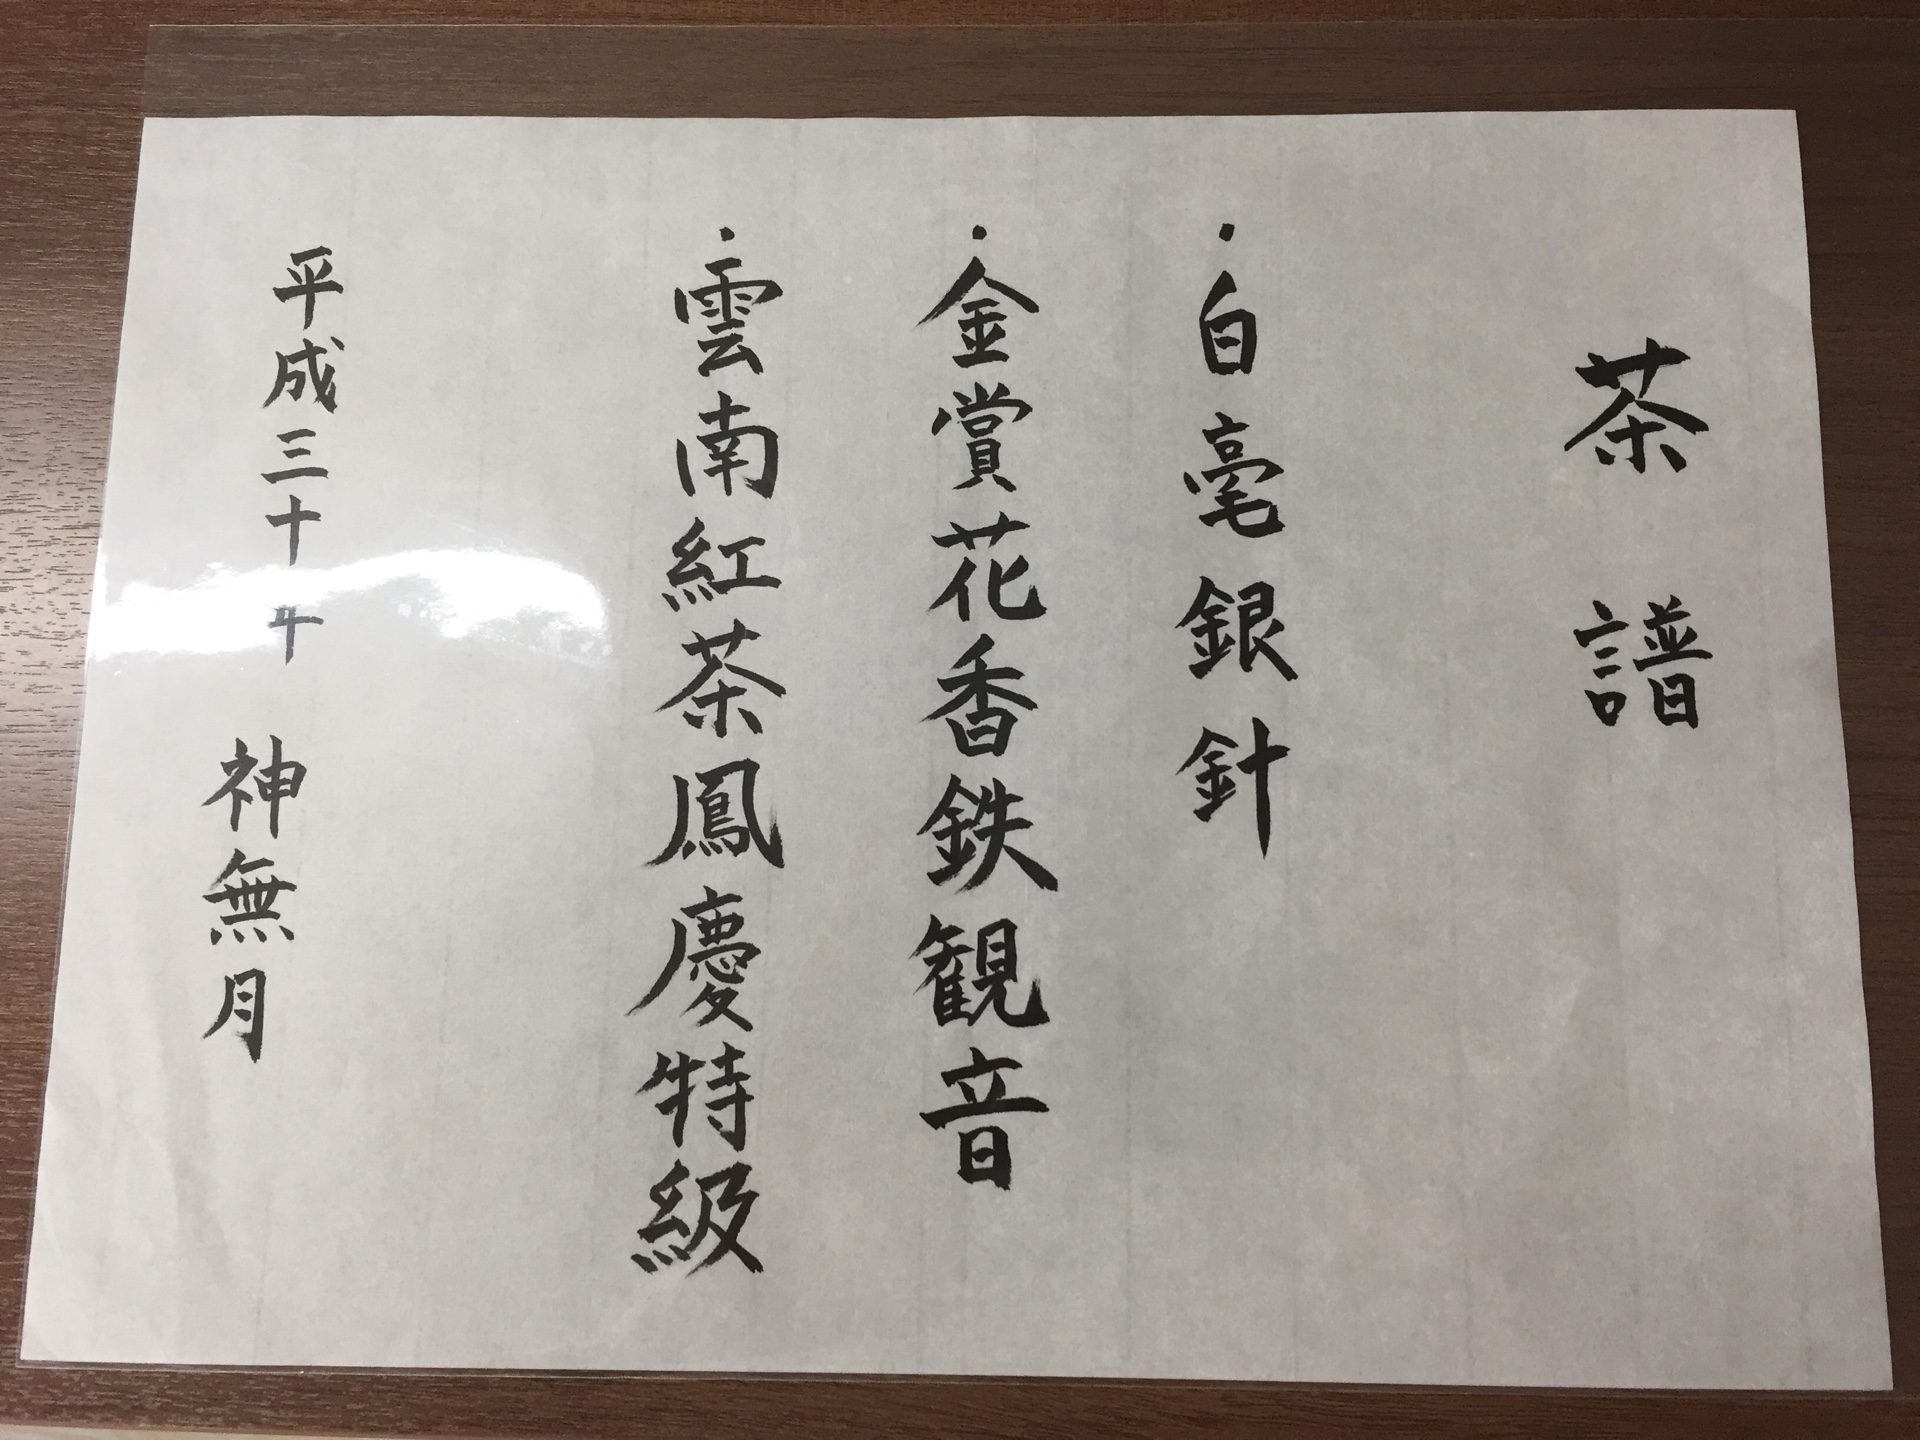 茶譜
・白毫銀針
・金賞花香鉄観音
・雲南紅茶鳳慶特級
平成三十年 神無月